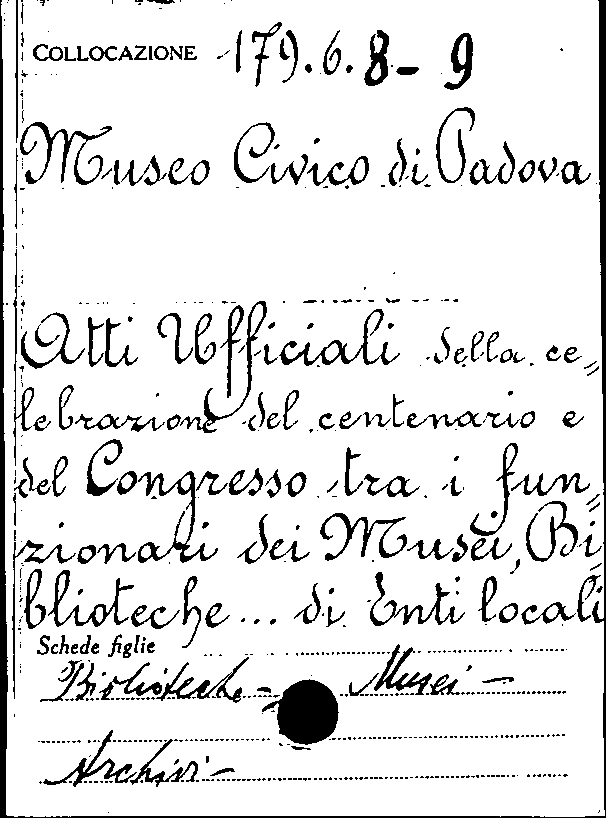 COLLOCAZIONE 179.6.8-9
Museo Civico di Padova
Atti Ufficiali della ce„
lebrazione del centenario e
del Congresso tra i fun„
zionari dei Musei, Bi
blioteche... di Enti locali
Schede figlie
Biblioteche - Musei -
Archivi -